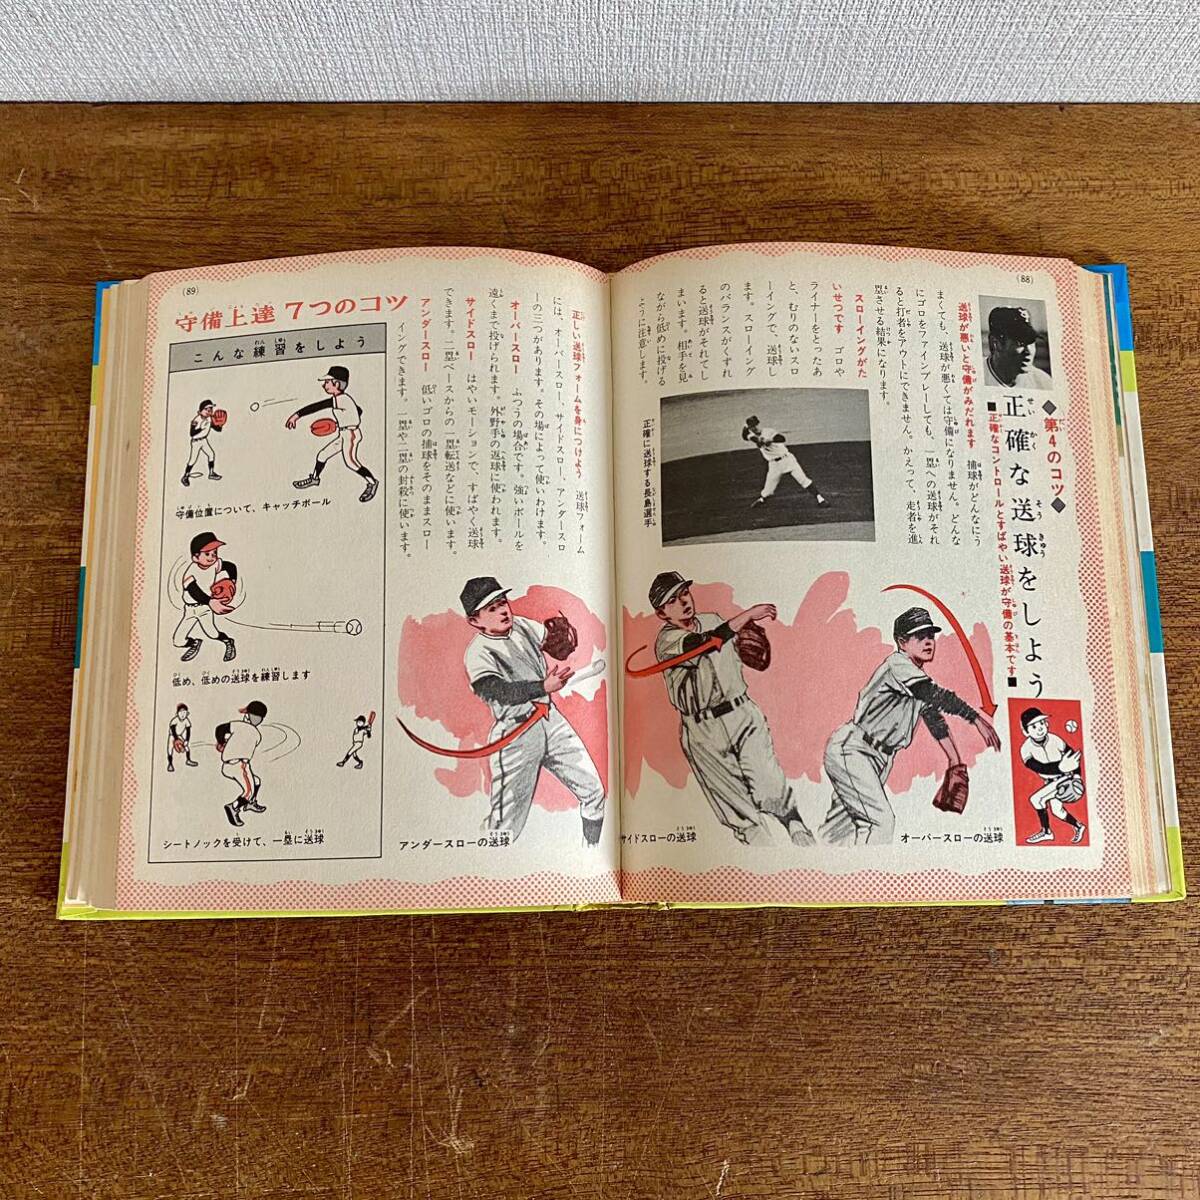 (88)
◆第4のコツ◆
正確な送球をしよう
■正確なコントロールとすばやい送球が守備の基本です■
送球が悪いと守備がみだれます　捕球がどんなにう
まくても、送球が悪くては守備になりません。どんな
にゴロをファインプレーしても、一塁への送球がそれ
ると打者をアウトにできません。かえって、走者を進
塁させる結果になります。
スローイングがた
いせつです　ゴロや
ライナーをとったあ
と、むりのないスロ
ーイングで、送球し
ます。スローイング
のバランスがくずれ
ると送球がそれてし
まいます。相手を見
ながら低めに投げる
ように注意します。
正確に送球する長島選手
オーバースローの送球
サイドスローの送球
(89)
守備上達 7つのコツ
正しい送球フォームを身につけよう　送球フォーム
には、オーバースロー、サイドスロー、アンダースロ
ーの三つがあります。その場によって使いわけます。
オーバースロー　ふつうの場合です。強いボールを
遠くまで投げられます。外野手の返球に使われます。
サイドスロー　はやいモーションで、すばやく送球
できます。二塁ベースからの一塁転送などに使います。
アンダースロー　低いゴロの捕球をそのままスロー
イングできます。一塁や二塁の封殺に使います。
アンダースローの送球
こんな練習をしよう
守備位置について、キャッチボール
低め、低めの送球を練習します
シートノックを受けて、一塁に送球